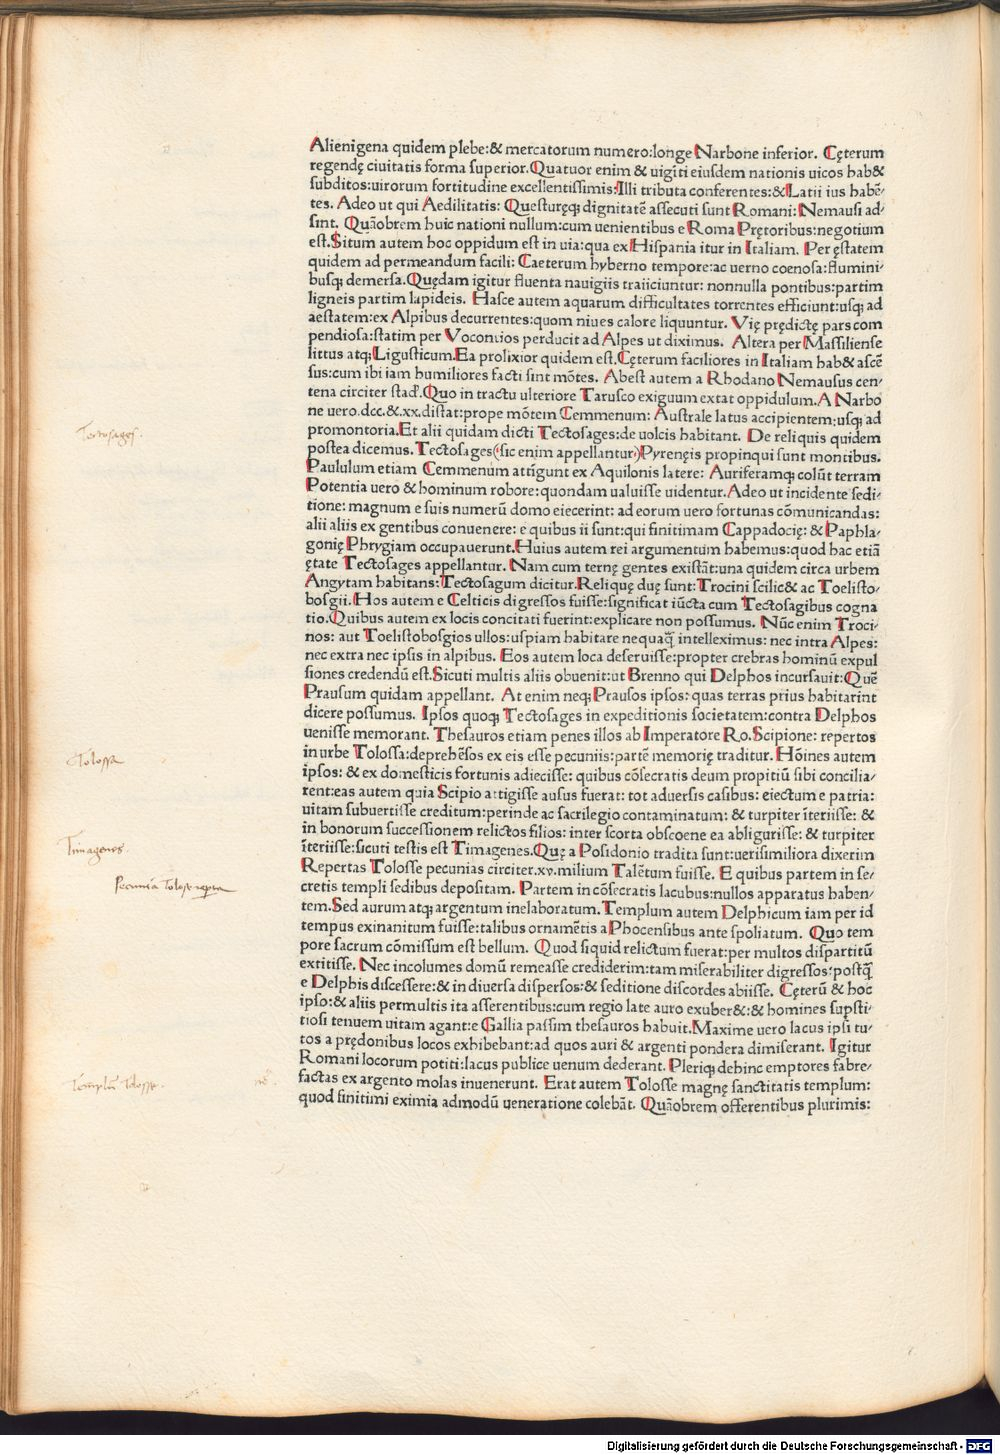 Alienigena quidem plebe:& mercatorum numero:longe Narbone inferior. Cęterum
regendę ciuitatis forma superior.Quatuor enim & uigīti eiusdem nationis uicos hab&
subditos:uirorum fortitudine excellentissimis:Illi tributa conferentes:& Latii ius habē-
tes. Adeo ut qui Aedilitatis: Questuręq; dignitatē assecuti sunt Romani: Nemausi ad-
sint. Quāobrem huic nationi nullum:cum uenientibus e Roma Prętoribus:negotium
est.Situm autem hoc oppidum est in uia:qua ex Hispania itur in Italiam. Per ęstatem
quidem ad permeandum facili: Caeterum hyberno tempore:ac uerno coenosa:flumini-
busq; demersa.Quędam igitur fluenta nauigiis traiiciuntur: nonnulla pontibus:partim
ligneis partim lapideis. Hasce autem aquarum difficultates torrentes efficiunt:usq; ad
aestatem:ex Alpibus decurrentes:quom niues calore liquuntur. Vię prędictę pars com
pendiosa:statim per Vocontios perducit ad Alpes ut diximus. Altera per Massiliense
littus atq; Ligusticum.Ea prolixior quidem est.Cęterum faciliores in Italiam hab& ascē
sus:cum ibi iam humiliores facti sint mōtes. Abest autem a Rhodano Nemausus cen-
tena circiter stad̄.Quo in tractu ulteriore Tarusco exiguum extat oppidulum.A Narbo
ne uero.dcc.&.xx.distat:prope mōtem Cemmenum: Australe latus accipientem:usq; ad
promontoria.Et alii quidam dicti Tectosages:de uolcis habitant. De reliquis quidem
postea dicemus. Tectosages(sic enim appellantur)Pyrenęis propinqui sunt montibus.
Paululum etiam Cemmenum attīgunt ex Aquilonis latere: Auriferamq; colūt terram
Potentia uero & hominum robore:quondam ualuisse uidentur.Adeo ut incidente sedi-
tione: magnum e suis numerū domo eiecerint: ad eorum uero fortunas cōmunicandas:
alii aliis ex gentibus conuenere: e quibus ii sunt:qui finitimam Cappadocię: & Paphla-
gonię Phrygiam occupauerunt.Huius autem rei argumentum habemus:quod hac etiā
ętate Tectosages appellantur. Nam cum ternę gentes existāt:una quidem circa urbem
Angytam habitans:Tectosagum dicitur.Reliquę duę sunt: Trocini scilic& ac Toelisto-
bosgii.Hos autem e Celticis digressos fuisse:significat iūcta cum Tectosagibus cogna
tio.Quibus autem ex locis concitati fuerint:explicare non possumus. Nūc enim Troci-
nos: aut Toelistobosgios ullos:uspiam habitare nequaq̄ intelleximus: nec intra Alpes:
nec extra nec ipsis in alpibus. Eos autem loca deseruisse:propter crebras hominū expul
siones credendū est.Sicuti multis aliis obuenit:ut Brenno qui Delphos incursauit:Quē
Prausum quidam appellant. At enim neq; Prausos ipsos: quas terras prius habitarint
dicere possumus. Ipsos quoq; Tectosages in expeditionis societatem:contra Delphos
uenisse memorant. Thesauros etiam penes illos ab Imperatore Ro.Scipione: repertos
in urbe Tolossa:deprehēsos ex eis esse pecuniis:partē memorię traditur. Hōines autem
ipsos: & ex domesticis fortunis adiecisse: quibus cōsecratis deum propitiū sibi concilia-
rent:eas autem quia Scipio attigisse ausus fuerat: tot aduersis casibus: eiectum e patria:
uitam subuertisse creditum:perinde ac sacrilegio contaminatum: & turpiter īteriisse: &
in bonorum successionem relictos filios: inter scorta obscoene ea abligurisse: & turpiter
īteriisse:sicuti testis est Timagenes.Quę a Posidonio tradita sunt:uerisimiliora dixerim
Repertas Tolosse pecunias circiter.xv.milium Talētum fuisse. E quibus partem in se-
cretis templi sedibus depositam. Partem in cōsecratis lacubus:nullos apparatus haben-
tem.Sed aurum atq; argentum inelaboratum. Templum autem Delphicum iam per id
tempus exinanitum fuisse:talibus ornamētis a Phocensibus ante spoliatum. Quo tem
pore sacrum cōmissum est bellum. Quod siquid relictum fuerat:per multos dispartitū
extitisse. Nec incolumes domū remeasse crediderim:tam miserabiliter digressos:postq̄
e Delphis discessere:& in diuersa dispersos:& seditione discordes abiisse. Cęterū & hoc
ipso:& aliis permultis ita asserentibus:cum regio late auro exuber&:& homines supsti-
tiosi tenuem uitam agant:e Gallia passim thesauros habuit.Maxime uero lacus ipsi tu-
tos a prędonibus locos exhibebant:ad quos auri & argenti pondera dimiserant. Igitur
Romani locorum potiti:lacus publice uenum dederant. Pleriq; dehinc emptores fabre-
factas ex argento molas inuenerunt. Erat autem Tolosse magnę sanctitatis templum:
quod finitimi eximia admodū ueneratione colebāt. Quāobrem offerentibus plurimis:
Tectosages.
Tolossa
Timagenes.
Pecunia Tolose reperta
Templū Tolosse.
Digitalisierung gefördert durch die Deutsche Forschungsgemeinschaft - DFG